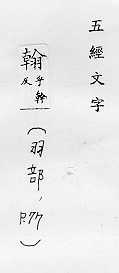 五經文字
翰乎幹反
(羽部,P.77)